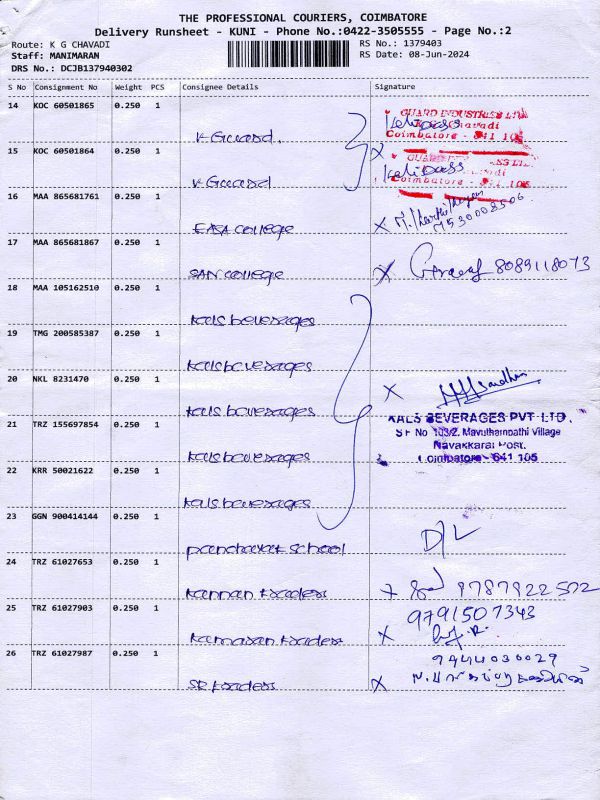 THE PROFESSIONAL COURIERS, COIMBATORE
Delivery Runsheet - KUNI - Phone No.:0422-3505555 - Page No.:2
Route: K G CHAVADI
RS No.: 1379403
Staff: MANIMARAN
RS Date: 08-Jun-2024
DRS No.: DCJB137940302
S No Consignment No Weight PCS Consignee Details Signature
14 KOC 60501865 0.250 1
GUARD INDUSTRIES
Coimbatore - 641 105
V Guard.
15 KOC 60501864 0.250 1 X
Kalidass
Coimbatore - 641 105
V Guard
16 MAA 865681761 0.250 1
EASA College X M.
17 MAA 865681867 0.250 1
SAN College X 8089118073
18 MAA 105162510 0.250 1
Kals beverages
19 TMG 200585387 0.250 1
Kals beverages
20 NKL 8231470 0.250 1 X
Kals beverages
KALS BEVERAGES PVT LTD.
21 TRZ 155697854 0.250 1
SF No 103/2, Mavuthampathi Village
Navakkarai Post,
Kals beverages
Coimbatore - 641 105
22 KRR 50021622 0.250 1
Kals beverages
23 GGN 900414144 0.250 1
panchayat school D/L
24 TRZ 61027653 0.250 1
Kannan traders X 9787922502
25 TRZ 61027903 0.250 1 9791507343
Kamaran traders X
26 TRZ 61027987 0.250 1 9444030029
SR traders X